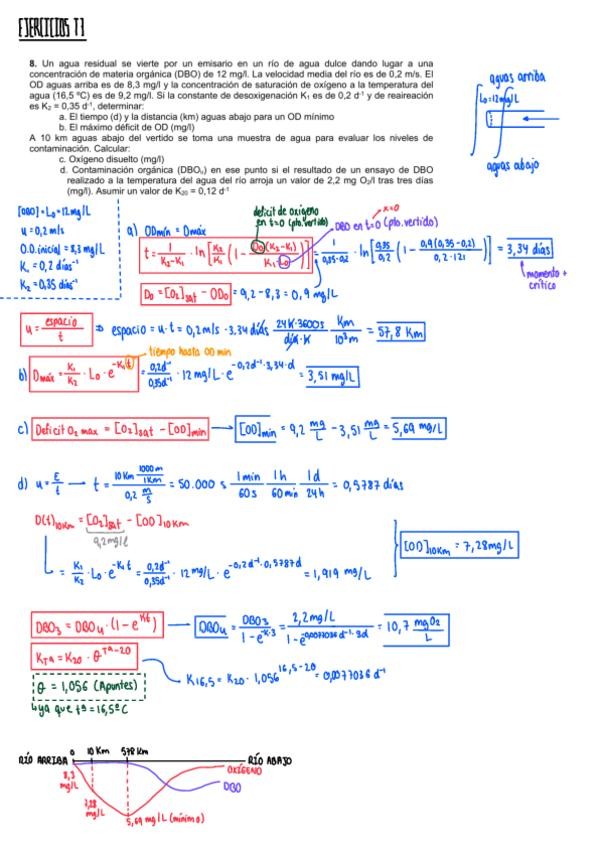 EJERCICIOS T3
8. Un agua residual se vierte por un emisario en un río de agua dulce dando lugar a una
concentración de materia orgánica (DBO) de 12 mg/l. La velocidad media del río es de 0,2 m/s. El
OD aguas arriba es de 8,3 mg/l y la concentración de saturación de oxígeno a la temperatura del
agua (16,5 ºC) es de 9,2 mg/l. Si la constante de desoxigenación K₁ es de 0,2 d⁻¹ y de reaireación
es K₂ = 0,35 d⁻¹, determinar:
a. El tiempo (d) y la distancia (km) aguas abajo para un OD mínimo
b. El máximo déficit de OD (mg/l)
A 10 km aguas abajo del vertido se toma una muestra de agua para evaluar los niveles de
contaminación. Calcular:
c. Oxígeno disuelto (mg/l)
d. Contaminación orgánica (DBOᵤ) en ese punto si el resultado de un ensayo de DBO
realizado a la temperatura del agua del río arroja un valor de 2,2 mg O₂/l tras tres días
(mg/l). Asumir un valor de K₂₀ = 0,12 d⁻¹
aguas arriba
L₀=12mg/L
aguas abajo
[DBO]=L₀=12mg/L
u=0,2m/s
O.D.inicial=8,3mg/L
K₁=0,2 días⁻¹
K₂=0,35 días⁻¹
a) ODmín = Dmáx
deficit de oxígeno en t=0 (pto.vertido)
x=0
DBO en t=0 (pto. vertido)
t = 1/(K₂-K₁) · ln[K₂/K₁ (1 - D₀(K₂-K₁)/(K₁·L₀))] = 1/(0,35-0,2) · ln[0,35/0,2 (1 - 0,9(0,35-0,2)/(0,2·12))] = 3,34 días
momento + crítico
D₀ = [O₂]sat - OD₀ = 9,2-8,3 = 0,9 mg/L
u = espacio/t ⇒ espacio = u·t = 0,2m/s · 3,34 días · 24h·3600s/día·h · Km/10³m = 57,8 Km
tiempo hasta OD min
b) Dmáx = K₁/K₂ · L₀ · e^(-K₁t) = 0,2d⁻¹/0,35d⁻¹ · 12 mg/L · e^(-0,2d⁻¹·3,34·d) = 3,51 mg/L
c) Deficit O₂ max = [O₂]sat - [OD]min → [OD]min = 9,2 mg/L - 3,51 mg/L = 5,69 mg/L
d) u = E/t → t = 10 Km · 1000m/1Km / 0,2 m/s = 50.000 s · 1min/60s · 1h/60min · 1d/24h = 0,5787 días
D(t)10Km = [O₂]sat - [OD]10Km
9,2mg/L
= K₁/K₂ · L₀ · e^(-K₁t) = 0,2d⁻¹/0,35d⁻¹ · 12 mg/L · e^(-0,2d⁻¹·0,5787d) = 1,919 mg/L
[OD]10Km = 7,28mg/L
DBO₃ = DBOu · (1-e^(-Kt)) → DBOu = DBO₃/(1-e^(-K·3)) = 2,2mg/L/(1-e^(-0,0077036 d⁻¹·3d)) = 10,7 mgO₂/L
K_Tª = K₂₀ · θ^(Tª-20)
K16,5 = K₂₀ · 1,056^(16,5-20) = 0,0077036 d⁻¹
θ = 1,056 (Apuntes)
↳ya que tª=16,5ºC
RÍO ARRIBA 0 10 Km 578 Km RÍO ABAJO
OXÍGENO
8,3 mg/L
DBO
7,28 mg/L
5,69 mg/L (mínimo)